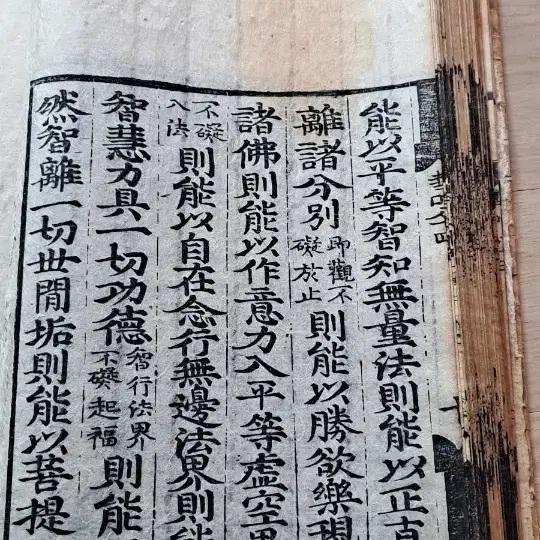 能以平等智知無量法則能以正直
離諸分別即觀不礙於止則能以勝欲樂現
諸佛則能以作意力入平等虛空界
不礙入法則能以自在念行無邊法界則能
智慧力具一切功德智行法界不礙起福則能
然智離一切世間垢則能以菩提